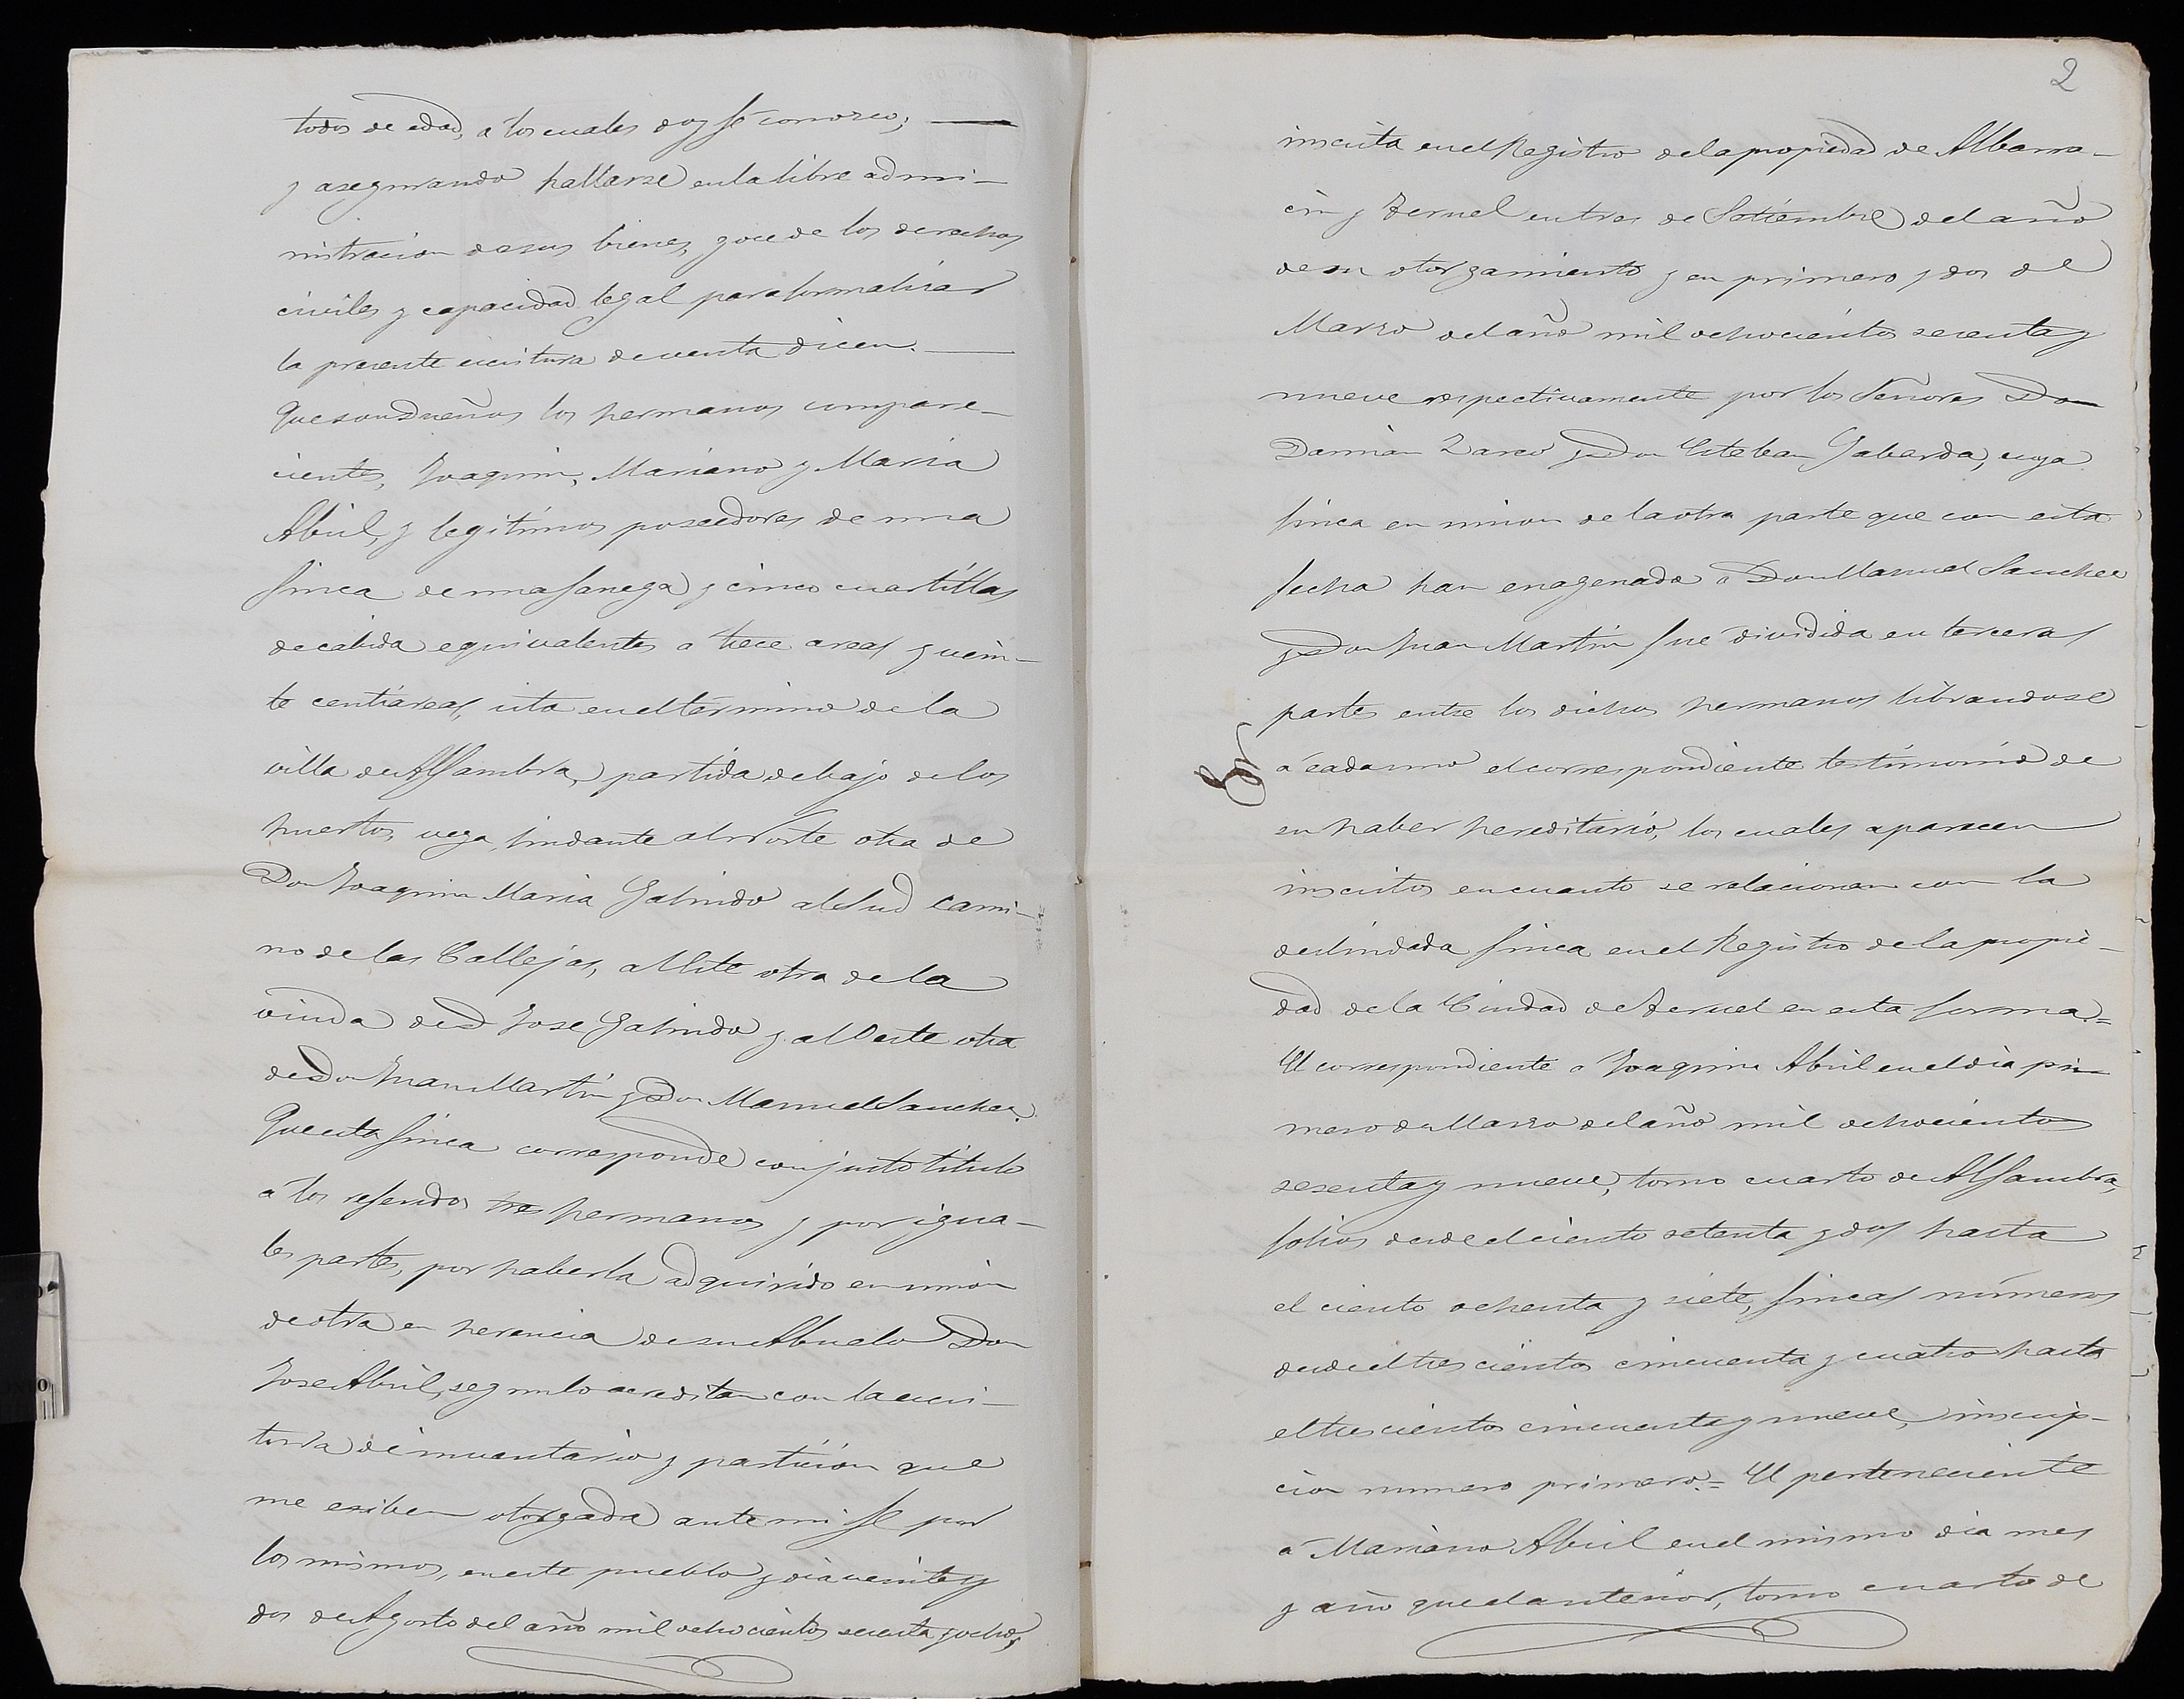 todos de edad, a los cuales doy fé conozco;
y asegurando hallarse en la libre admi-
nistracion de sus bienes, goce de los derechos
civiles y capacidad legal para formalizar
la presente escritura de venta dicen.
Que son dueños los hermanos compare-
cientes, Joaquin, Mariano y Maria
Abril, y legitimos poseedores de una
finca de una fanega y cinco cuartillas
de cabida equivalentes a trece areas y vein-
te centiareas, sita en el término de la
villa de Alfambra, partida debajo de los
huertos, vega, lindante al Norte otra de
Don Joaquin Maria Galindo al Sud cami-
no de las Callejas, al Este otra de la
viuda de D Jose Galindo y al Oeste otra
de Don Juan Martin y Don Manuel Sanchez.
Que esta finca corresponde con justo titulo
á los referidos tres hermanos y por igua-
les partes, por haberla adquirido en union
de otra en herencia de su Abuelo Don
Jose Abril, segun lo acreditan con la escri-
tura de inventario y particion que
me exiben otorgada ante mi fé por
los mismos, en este pueblo y dia veinte y
dos de Agosto del año mil ochocientos sesenta y ocho,
2
inscrita en el Registro de la propiedad de Albarra-
cin y Teruel en tres de Setiembre del año
de su otorgamiento y en primero y dos de
Marzo del año mil ochocientos sesenta y
nueve respectivamente por los Señores Don
Damian Zarco y Don Esteban Gabarda, cuya
finca en union de la otra parte que con esta
fecha han enagenado a Don Manuel Sanchez
y Don Juan Martin fué dividida en terceras
partes entre los dichos hermanos librandose
á cada uno el correspondiente testimonio de
su haber hereditario, los cuales aparecen
inscritos en cuanto se relacionan con la
deslindada finca en el Registro de la propie-
dad de la Ciudad de Teruel en esta forma.=
El correspondiente a Joaquin Abril en el dia pri-
mero de Marzo del año mil ochocientos
sesenta y nueve, tomo cuarto de Alfambra,
folios desde el ciento setenta y dos hasta
el ciento ochenta y siete, fincas números
desde el trescientos cincuenta y cuatro hasta
el trescientos cincuenta y nueve, inscrip-
cion numero primero.= El perteneciente
á Mariano Abril en el mismo dia mes
y año que el anterior, tomo cuarto de